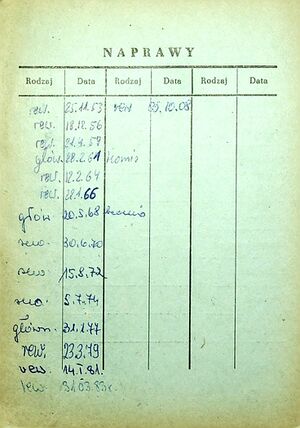 NAPRAWY
Rodzaj Data Rodzaj Data Rodzaj Data
rew. 25.11.53 rew 08
rew. 18.12.56
rew. 21.4.59
główn. 28.2.61
rew. 12.2.64
rew. 28.1.66
główn 20.5.68
rew. 30.6.70
rew 15.8.72
rew. 5.7.74
główn. 31.1.77
rew. 23.3.79
rew. 14.I.81.
rew. 31.03.83r.